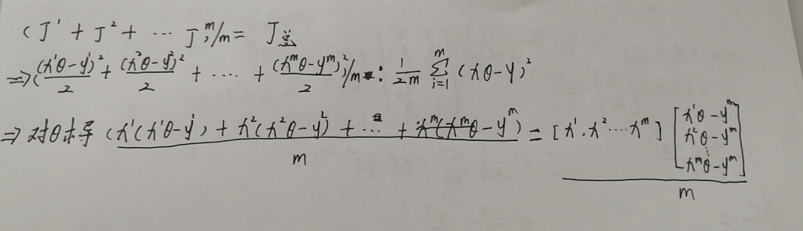 (J¹ + J² + ⋯ Jᵐ)/m = J总
⇒ ((x¹θ-y¹)²/2 + (x²θ-y²)²/2 + ⋯⋯ + (xᵐθ-yᵐ)²/2)/m = : 1/2m ∑ᵢ₌₁ᵐ (xθ-y)²
⇒ 对θ求导 (x¹(x¹θ-y¹) + x²(x²θ-y²) + ⋯ + xᵐ(xᵐθ-yᵐ))/m = [x¹, x² ⋯ xᵐ] [x¹θ-yᵐ x²θ-yᵐ ⋮ xᵐθ-yᵐ]/m